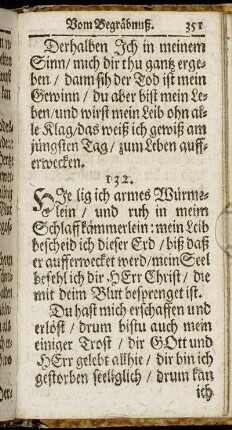 Vom Begräbnuß. 351
Derhalben Ich in meinem
Sinn / mich dir thu gantz erge-
ben / dann sih der Tod ist mein
Gewinn / du aber bist mein Le-
ben / und wirst mein Leib ohn al-
le Klag / das weiß ich gewiß am
jüngsten Tag / zum Leben auff-
erwecken.
132.
HIe lig ich armes Würme-
lein / und ruh in meim
Schlaffkämmerlein: mein Leib
bescheid ich dieser Erd / biß daß
er aufferwecket werd / mein Seel
befehl ich dir HErr Christ / die
mit deim Blut besprenget ist.
Du hast mich erschaffen und
erlöst / drum bistu auch mein
einiger Trost / dir GOtt und
HErr gelebt allhie / dir bin ich
gestorben seeliglich / drum kan
ich